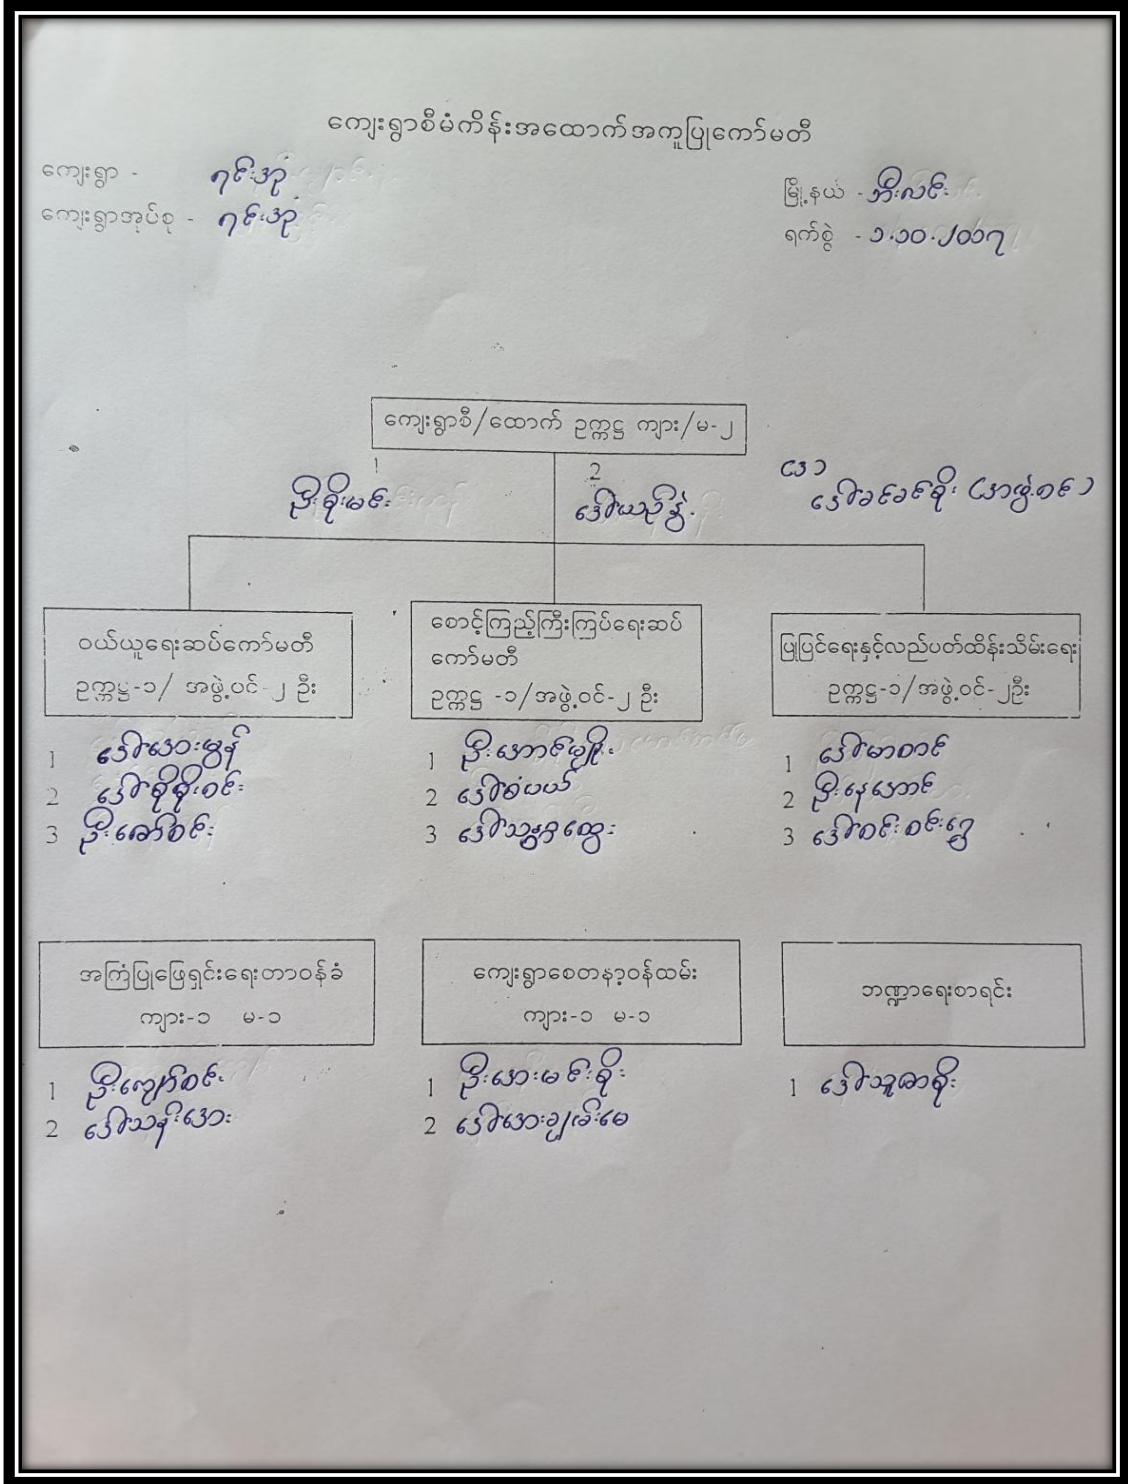 ကျေးရွာစီမံကိန်းအထောက်အကူပြုကော်မတီ
ကျေးရွာ - ရင်းအုံ
ကျေးရွာအုပ်စု - ရင်းအုံ
မြို့နယ် - ဘီးလင်း
ရက်စွဲ - ၁.၁၀.၂၀၁၇
ကျေးရွာစီ/ထောက် ဥက္ကဋ္ဌ ကျား/မ-၂
1 ဦးစိုးမင်း
2 ဒေါ်ယဉ်နွဲ့
ဒေါ်ခင်ခင်စိုး (အဖွဲ့ဝင်)
ဝယ်ယူရေးဆပ်ကော်မတီ
ဥက္ကဋ္ဌ-၁/ အဖွဲ့ဝင်-၂ ဦး
1 ဒေါ်အေးမွန်
2 ဒေါ်စိုးစိုးဝင်း
3 ဦးဇော်ဝင်း
စောင့်ကြည့်ကြီးကြပ်ရေးဆပ်
ကော်မတီ
ဥက္ကဋ္ဌ -၁/အဖွဲ့ဝင်-၂ ဦး
1 ဦးအောင်မျိုး
2 ဒေါ်စံပယ်
3 ဒေါ်သန္တာထွေး
ပြုပြင်ရေးနှင့်လည်ပတ်ထိန်းသိမ်းရေး
ဥက္ကဋ္ဌ-၁/အဖွဲ့ဝင်-၂ဦး
1 ဒေါ်မာတင်
2 ဦးနေအောင်
3 ဒေါ်ဝင်းဝင်းရွှေ
အကြံပြုဖြေရှင်းရေးတာဝန်ခံ
ကျား-၁ မ-၁
1 ဦးကျော်ဝင်း
2 ဒေါ်သန်းအေး
ကျေးရွာစေတနာ့ဝန်ထမ်း
ကျား-၁ မ-၁
1 ဦးအေးမင်းစိုး
2 ဒေါ်အေးချမ်းမေ
ဘဏ္ဍာရေးစာရင်း
1 ဒေါ်သူဇာစိုး